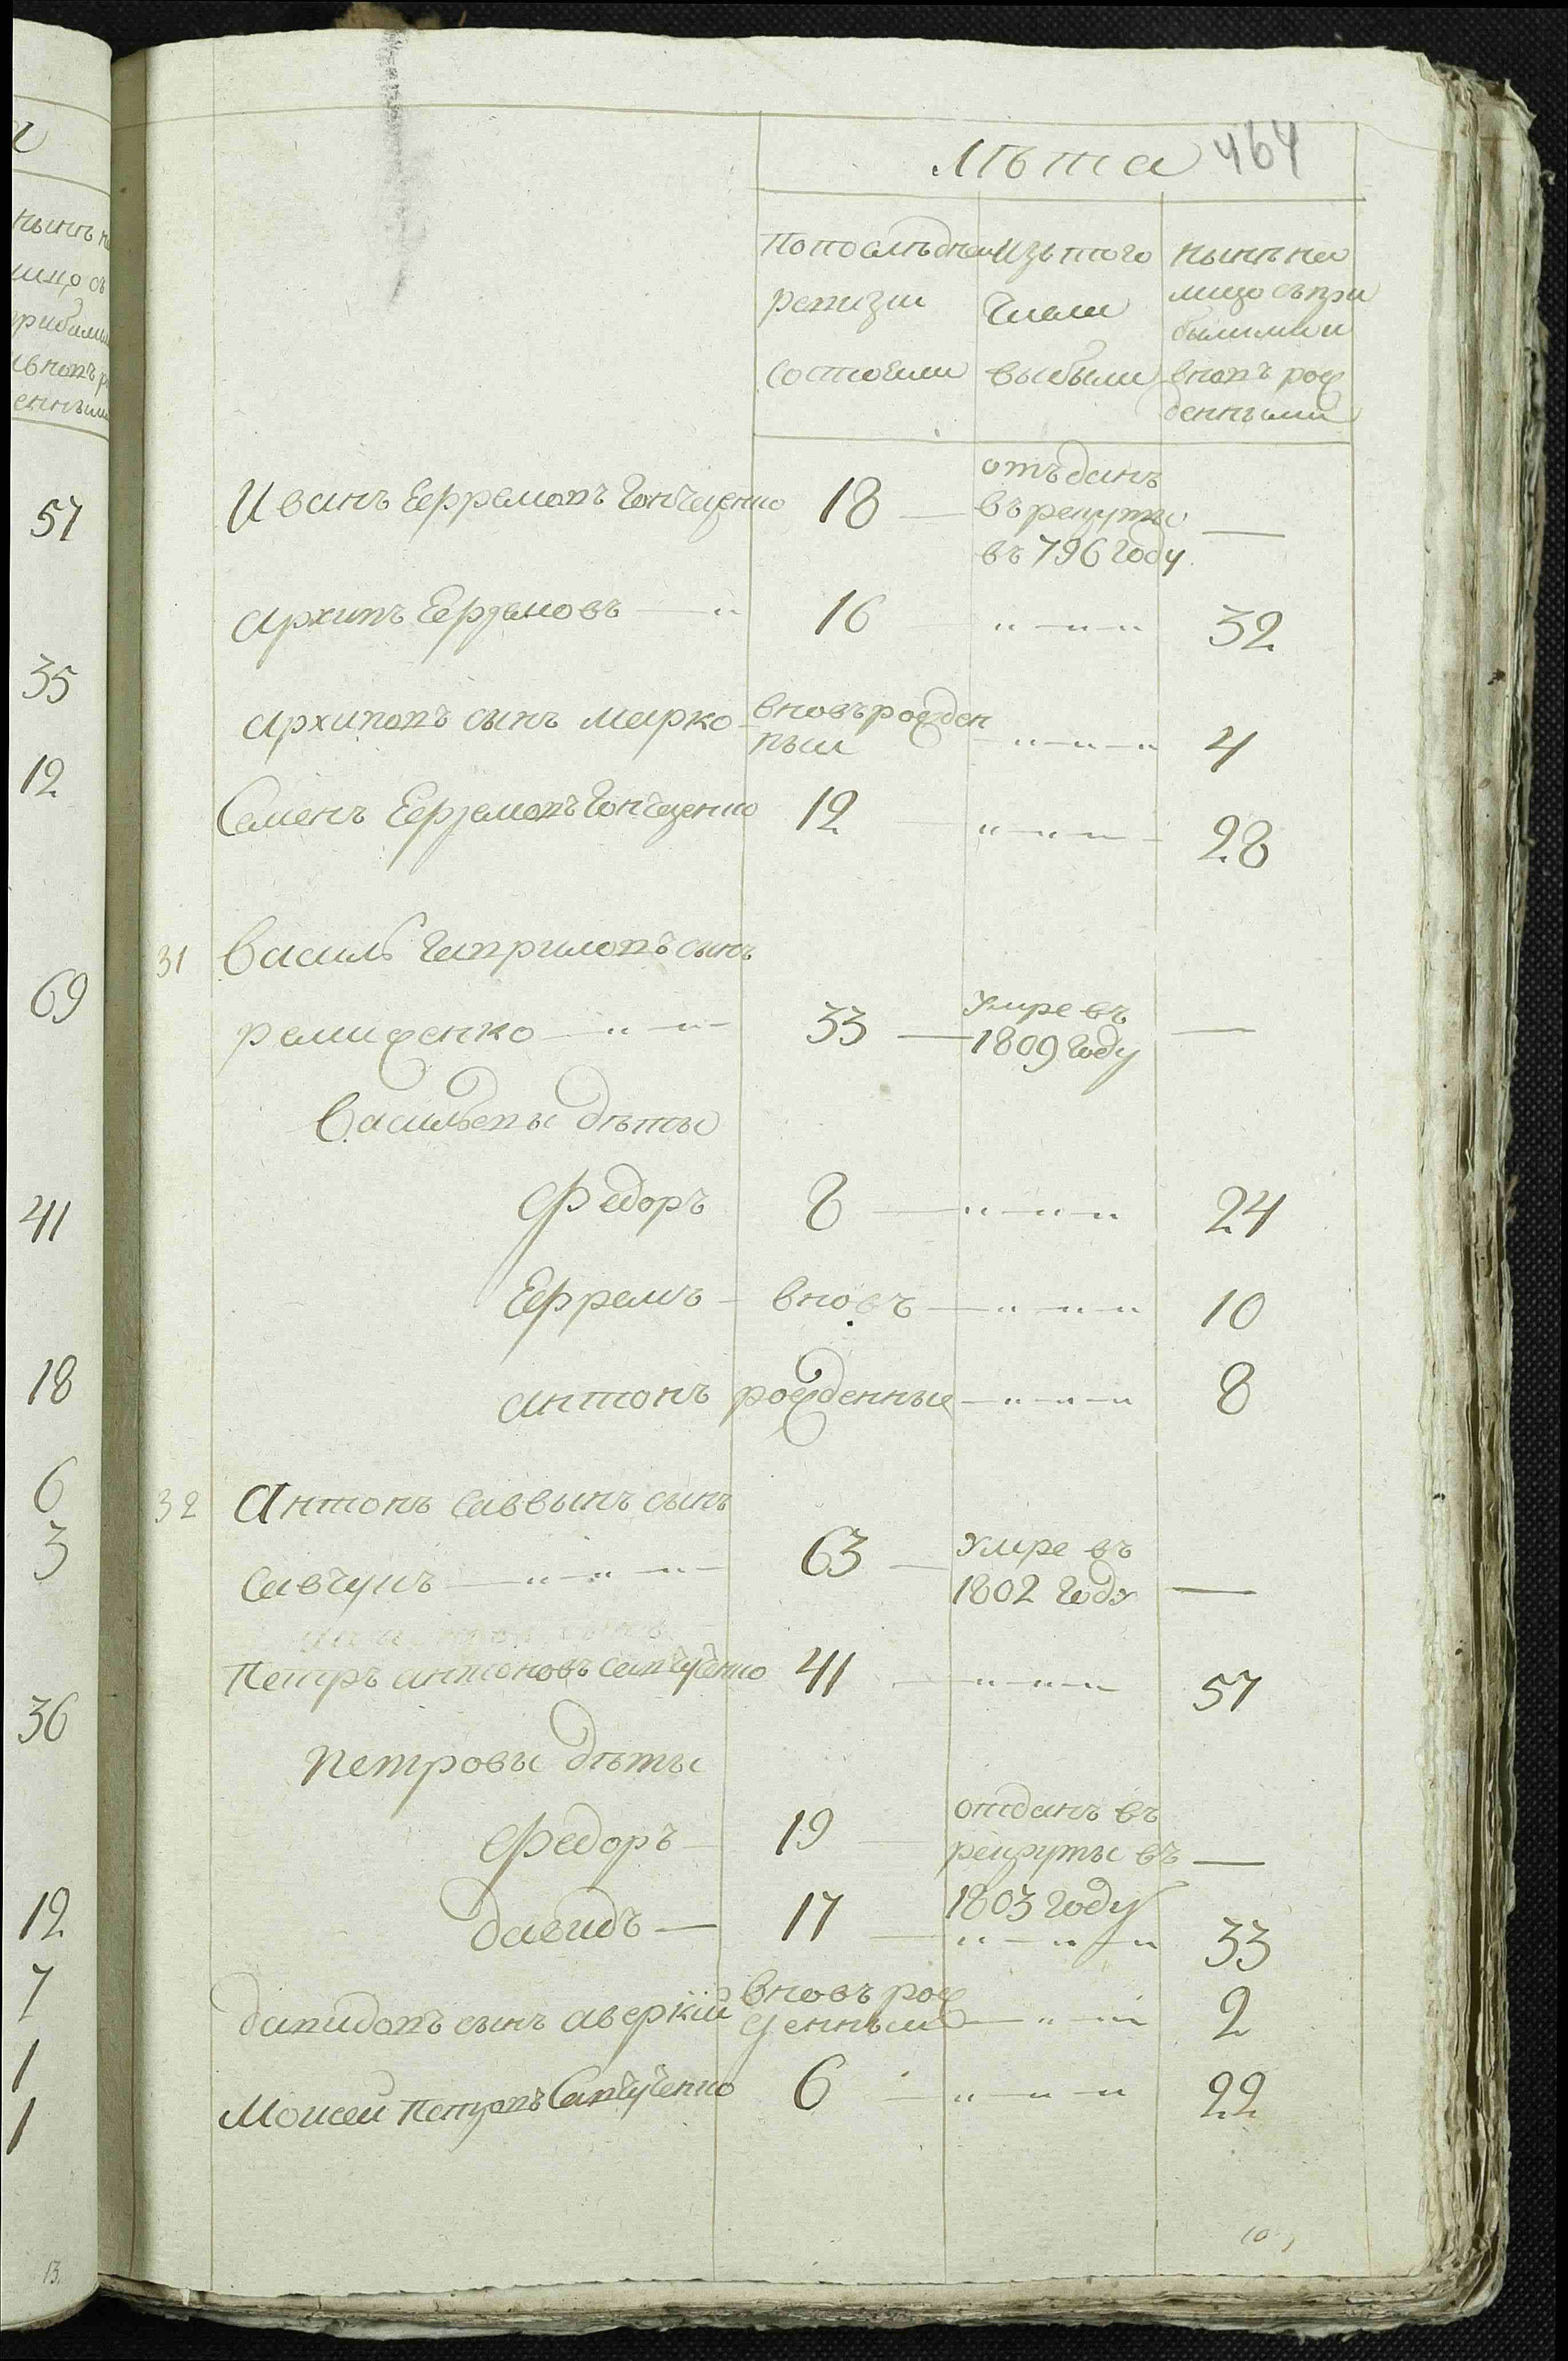 464
лѣта
по последней
ревизии
состояли
Изъ того
числа
выбыли
ныне на
лицо съ при
былыми и
вновъ рож
денными
Иванъ Ефремовъ Гончаренко 18 — отъданъ
въ рекруты —
въ 796 году
архипъ Ефремовъ — 16 — 32
архиповъ сынъ марко вновърожден
ный — 4
Семенъ Ефремовъ Гончаренко 12 — 28
31 Василь Гавриловъ сынъ
ремиженко — 33 — умре въ
1809 году —
Васильевы дѣты
Федоръ 8 — 24
Ефремъ — вновъ — 10
антонъ рожденные — 8
32 Антонъ саввынъ сынъ
савчукъ — 63 — умре въ
1802 году —
Петръ антоновъ савчученко 41 — 57
Петровы дѣты
Федоръ — 19 — отданъ въ
рекруты въ —
1803 году
давидъ — 17 — 33
давидовъ сынъ аверкий вновъ рож
денный — 2
Моисей Петровъ Савчученко 6 — 22
нынѣ на
лицо съ
прибылы
вновъ р
енными
57
35
12
69
41
18
6
3
36
12
7
1
1
13.